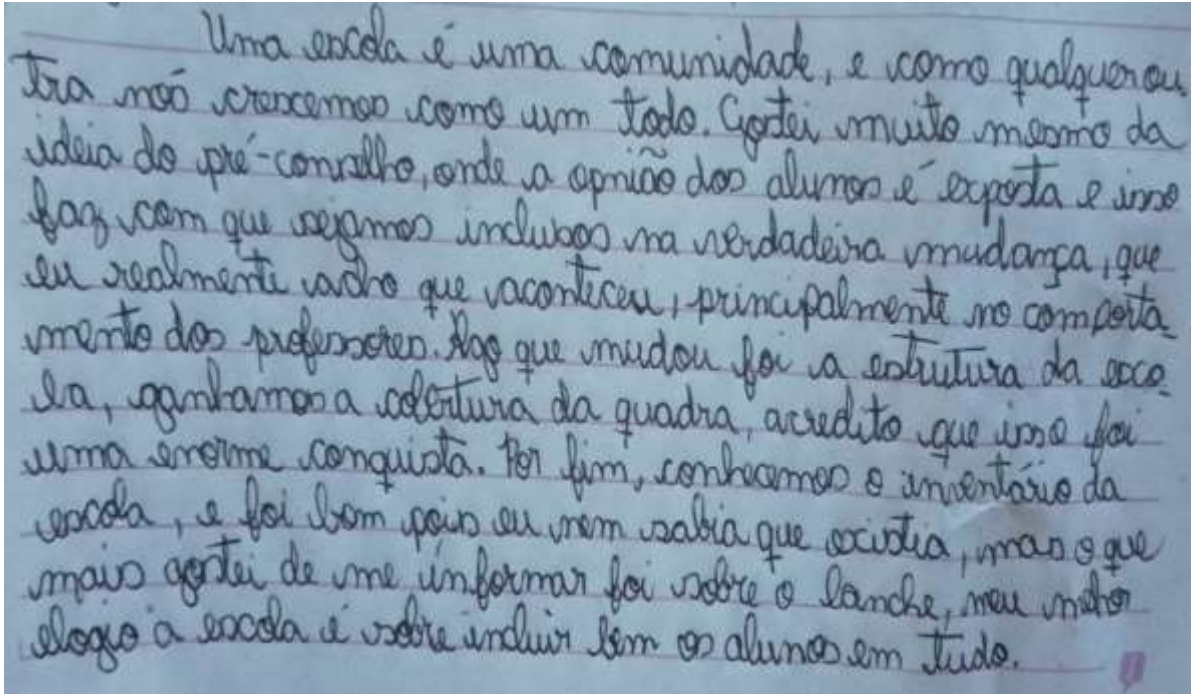 Uma escola é uma comunidade, e como qualquer ou
tra nós crescemos como um todo. Gostei muito mesmo da
ideia do pré-conselho, onde a opnião dos alunos é exposta e isso
faz com que sejamos inclusos na verdadeira mudança, que
eu realmente acho que aconteceu, principalmente no comporta_
mento dos professores. Algo que mudou foi a estrutura da esco_
la, ganhamos a cobertura da quadra, acredito que isso foi
uma enorme conquista. Por fim, conhecemos o inventário da
escola, e foi bom pois eu nem sabia que existia, mas o que
mais gostei de me informar foi sobre o lanche, meu melhor
elogio à escola é sobre incluir bem os alunos em tudo.